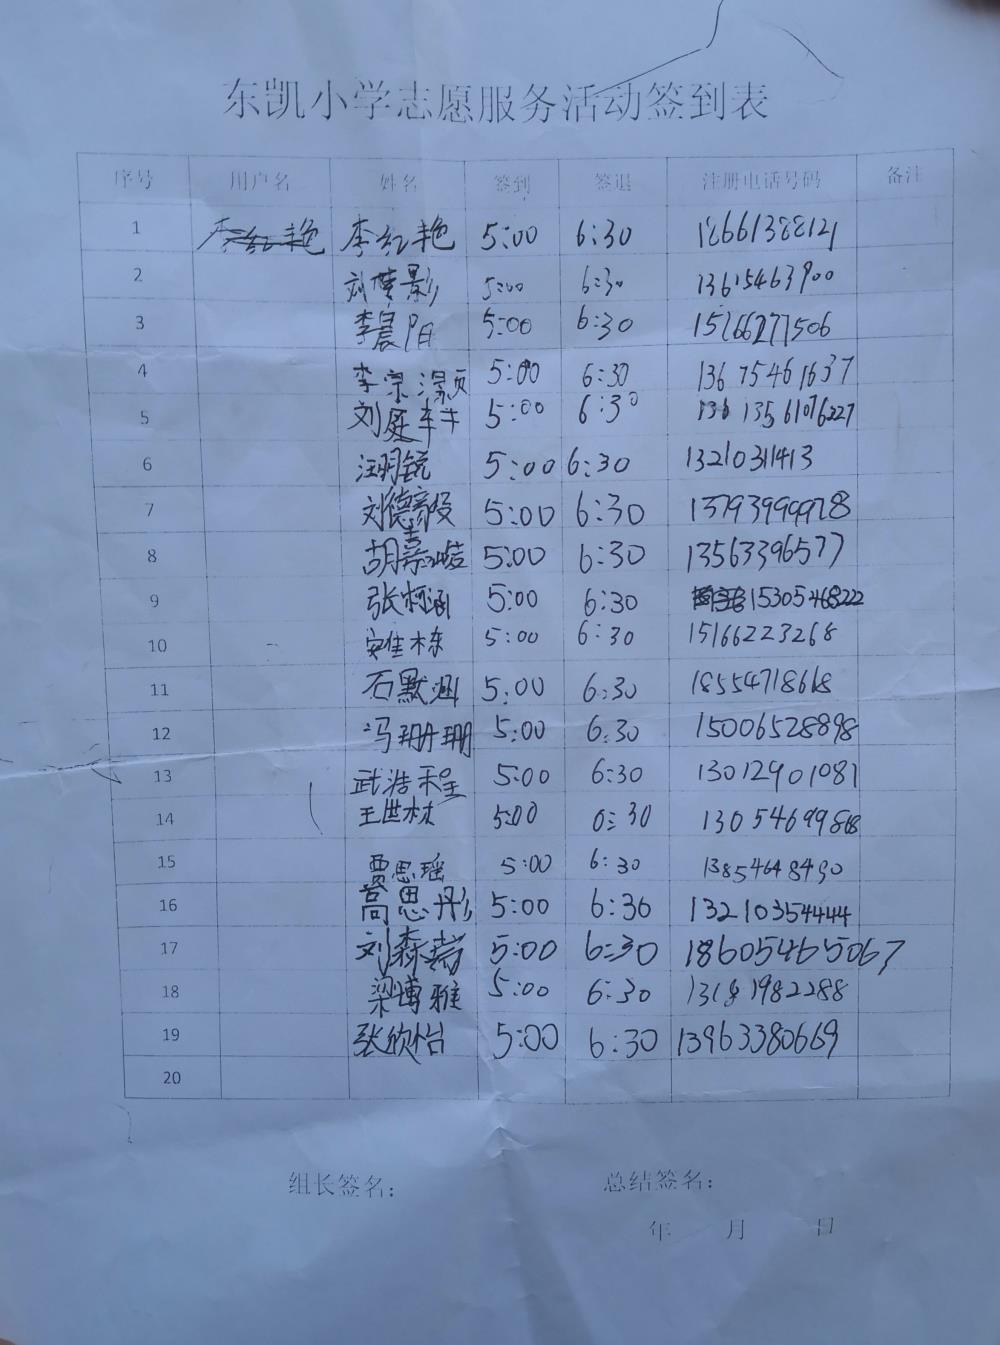 东凯小学志愿服务活动签到表
序号 用户名 姓名 签到 签退 注册电话号码 备注
1 李红艳 李红艳 5:00 6:30 18661388121
2 刘梦影 5:00 6:30 13615463900
3 李晨阳 5:00 6:30 15266277506
4 李宗灏 5:00 6:30 13675461637
5 刘庭 5:00 6:30 13561076227
6 汪明锐 5:00 6:30 13210311413
7 刘德毅 5:00 6:30 13793999978
8 胡嘉峻 5:00 6:30 13563396577
9 张柯涵 5:00 6:30 15305468222
10 安佳栋 5:00 6:30 15166223268
11 石默涵 5:00 6:30 18554718618
12 冯珊珊 5:00 6:30 15006528898
13 武浩程 5:00 6:30 13012901081
14 王世林 5:00 6:30 13054699868
15 贾思瑶 5:00 6:30 13854648490
16 高思彤 5:00 6:30 13210354444
17 刘森瑞 5:00 6:30 18605465067
18 梁博雅 5:00 6:30 13181982288
19 张欣怡 5:00 6:30 13963380669
20
组长签名： 总结签名：
年 月 日